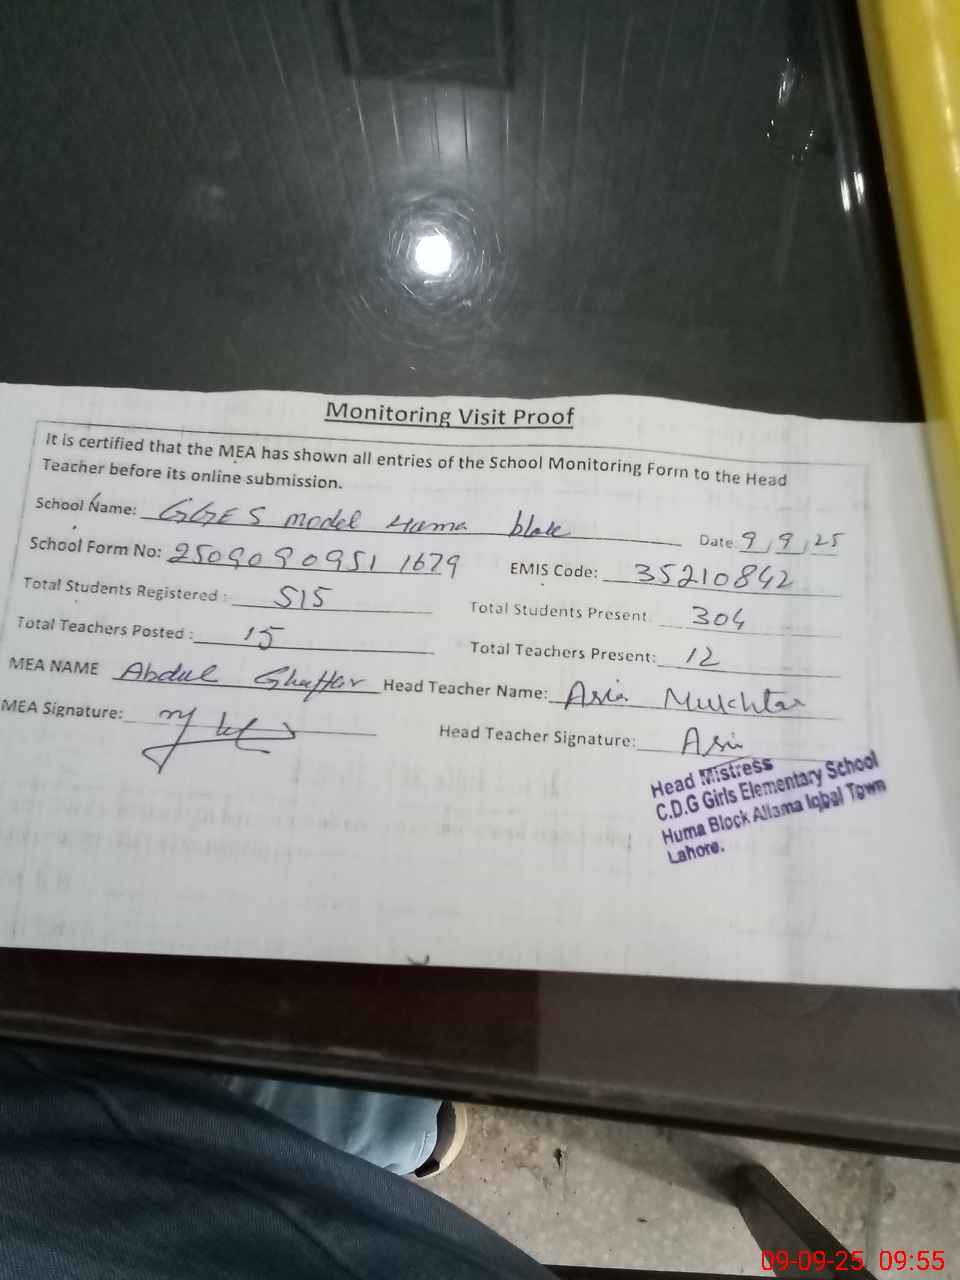 Monitoring Visit Proof
It is certified that the MEA has shown all entries of the School Monitoring Form to the Head
Teacher before its online submission.
School Name: GGES model Huma blok Date: 9/9/25
School Form No: 2509090951 1679 EMIS Code: 35210842
Total Students Registered : 515 Total Students Present 304
Total Teachers Posted : 15 Total Teachers Present: 12
MEA NAME Abdul Ghaffar Head Teacher Name: Asia Mukhtar
MEA Signature: Head Teacher Signature: Asia
Head Mistress
C.D.G Girls Elementary School
Huma Block Allama Iqbal Town
Lahore.
09-09-25 09:55